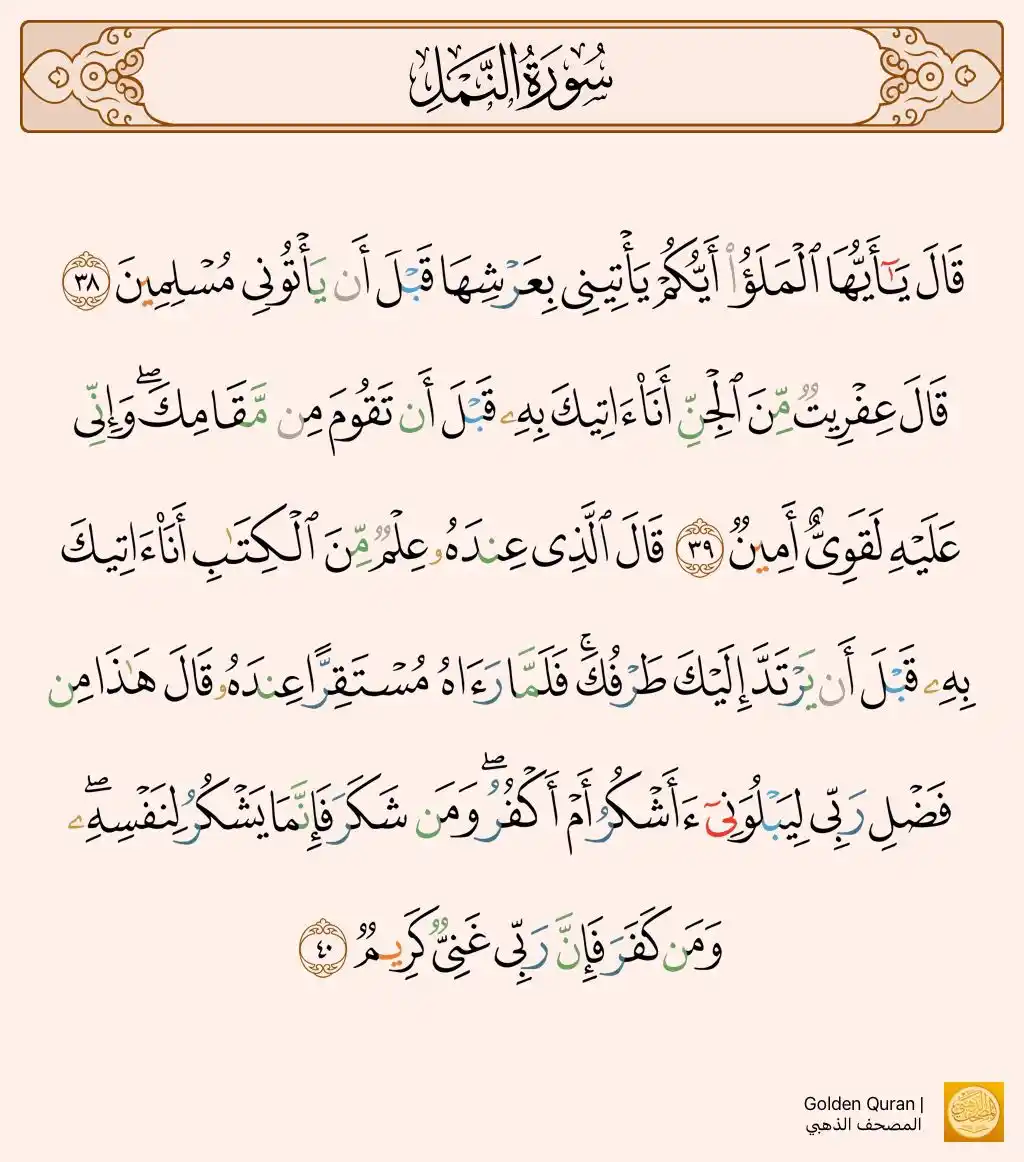 سُورَةُ النَّمۡلِ
قَالَ يَـٰٓأَيُّهَا ٱلۡمَلَؤُاْ أَيُّكُمۡ يَأۡتِينِى بِعَرۡشِهَا قَبۡلَ أَن يَأۡتُونِى مُسۡلِمِينَ ٣٨
قَالَ عِفۡرِيتٌ مِّنَ ٱلۡجِنِّ أَنَا۠ ءَاتِيكَ بِهِۦ قَبۡلَ أَن تَقُومَ مِن مَّقَامِكَۖ وَإِنِّى
عَلَيۡهِ لَقَوِىٌّ أَمِينٌ ٣٩ قَالَ ٱلَّذِى عِندَهُۥ عِلۡمٌ مِّنَ ٱلۡكِتَـٰبِ أَنَا۠ ءَاتِيكَ
بِهِۦ قَبۡلَ أَن يَرۡتَدَّ إِلَيۡكَ طَرۡفُكَۚ فَلَمَّا رَءَاهُ مُسۡتَقِرًّا عِندَهُۥ قَالَ هَـٰذَا مِن
فَضۡلِ رَبِّى لِيَبۡلُوَنِىٓ ءَأَشۡكُرُ أَمۡ أَكۡفُرُۖ وَمَن شَكَرَ فَإِنَّمَا يَشۡكُرُ لِنَفۡسِهِۦۖ
وَمَن كَفَرَ فَإِنَّ رَبِّى غَنِىٌّ كَرِيمٌ ٤٠
Golden Quran |
المصحف الذهبي